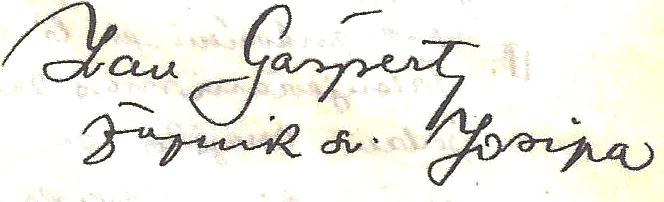 Ivan Gašpert
župnik sv. Josipa